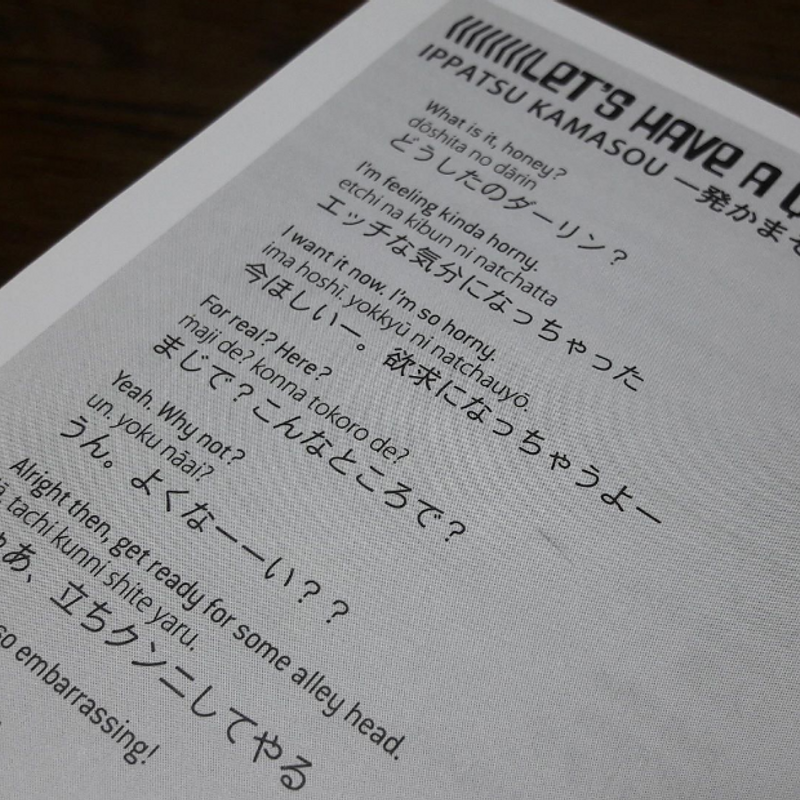 LET'S HAVE A
IPPATSU KAMASOU 一発かまそ
What is it, honey?
dōshita no dārin
どうしたのダーリン？
I'm feeling kinda horny.
etchi na kibun ni natchatta
エッチな気分になっちゃった
I want it now. I'm so horny.
ima hoshī. yokkyū ni natchauyō.
今ほしいー。欲求になっちゃうよー
For real? Here?
maji de? konna tokoro de?
まじで？こんなところで？
Yeah. Why not?
un. yoku nāai?
うん。よくなーーい？？
Alright then, get ready for some alley head.
tachi kunni shite yaru.
あ、立ちクンニしてやる
so embarrassing!